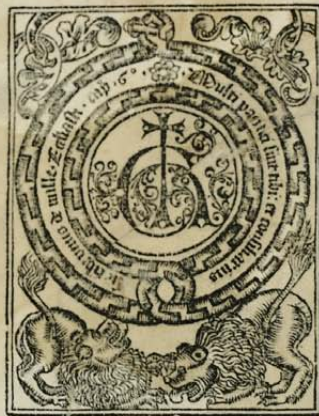 Multi pacifici sint tibi: et cōsiliarius sit tibi vnus de mille · Eccliast · cap · 6° ·
G